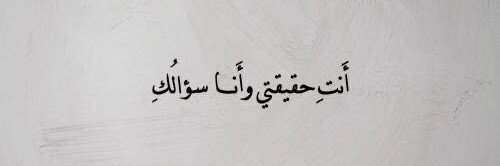 أَنتِ حقيقتي وأَنا سؤالُكِ